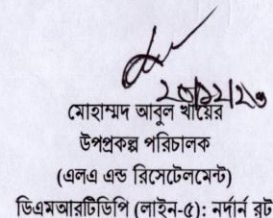 ২৩/১২/২৩
মোহাম্মদ আবুল খায়ের
উপপ্রকল্প পরিচালক
(এলএ এন্ড রিসেটেলমেন্ট)
ডিএমআরটিডিপি (লাইন-৫): নর্দার্ন রুট